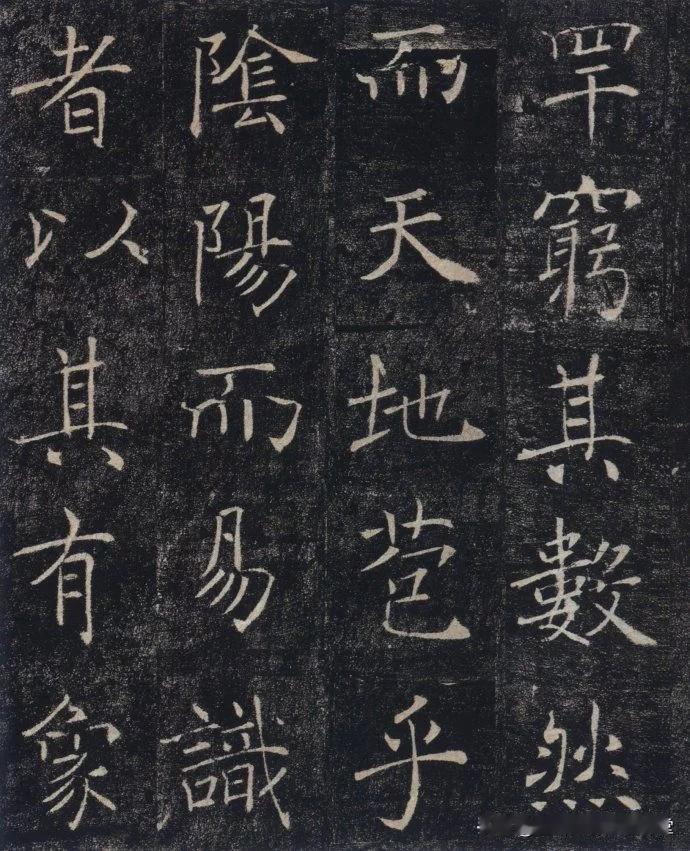 罕窮其數然
而天地苞乎
陰陽而易識
者以其有象